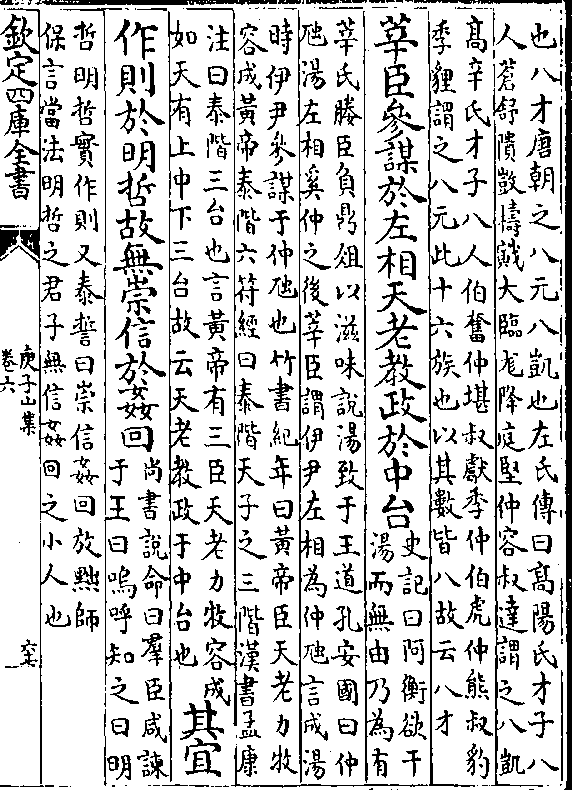 也八才唐朝之八元八凱也左氏傳曰髙陽氏才子八
人蒼舒隤敳檮戭大臨尨降庭堅仲容叔達謂之八凱
髙辛氏才子八人伯奮仲堪叔獻季仲伯虎仲熊叔豹
季貍謂之八元此十六族也以其數皆八故云八才
莘臣參謀於左相天老教政於中台史記曰阿衡欲干
湯而無由乃為有
莘氏媵臣負鼎俎以滋味說湯致于王道孔安國曰仲
虺湯左相奚仲之後莘臣謂伊尹左相為仲虺言成湯
時伊尹參謀于仲虺也竹書紀年曰黃帝臣天老力牧
容成黃帝泰階六符經曰泰階天子之三階漢書孟康
注曰泰階三台也言黃帝有三臣天老力牧容成
如天有上中下三台故云天老教政于中台也
其宜
作則於明哲故無崇信於姦回尚書說命曰羣臣咸諫
于王曰嗚呼知之曰明
哲明哲實作則又泰誓曰崇信姦回放黜師
保言當法明哲之君子無信姦回之小人也
欽定四庫全書
庾子山集
卷六